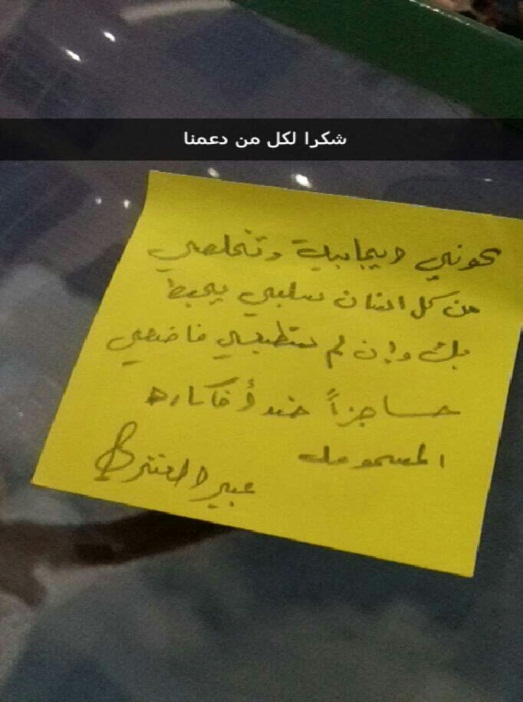 شكرا لكل من دعمنا
كوني ايجابية وتخلصي
من كل انسان سلبي يحيط
بك وإن لم تستطيعي فاضعي
حاجزاً ضد أفكاره
المسمومه
عبير العنتري